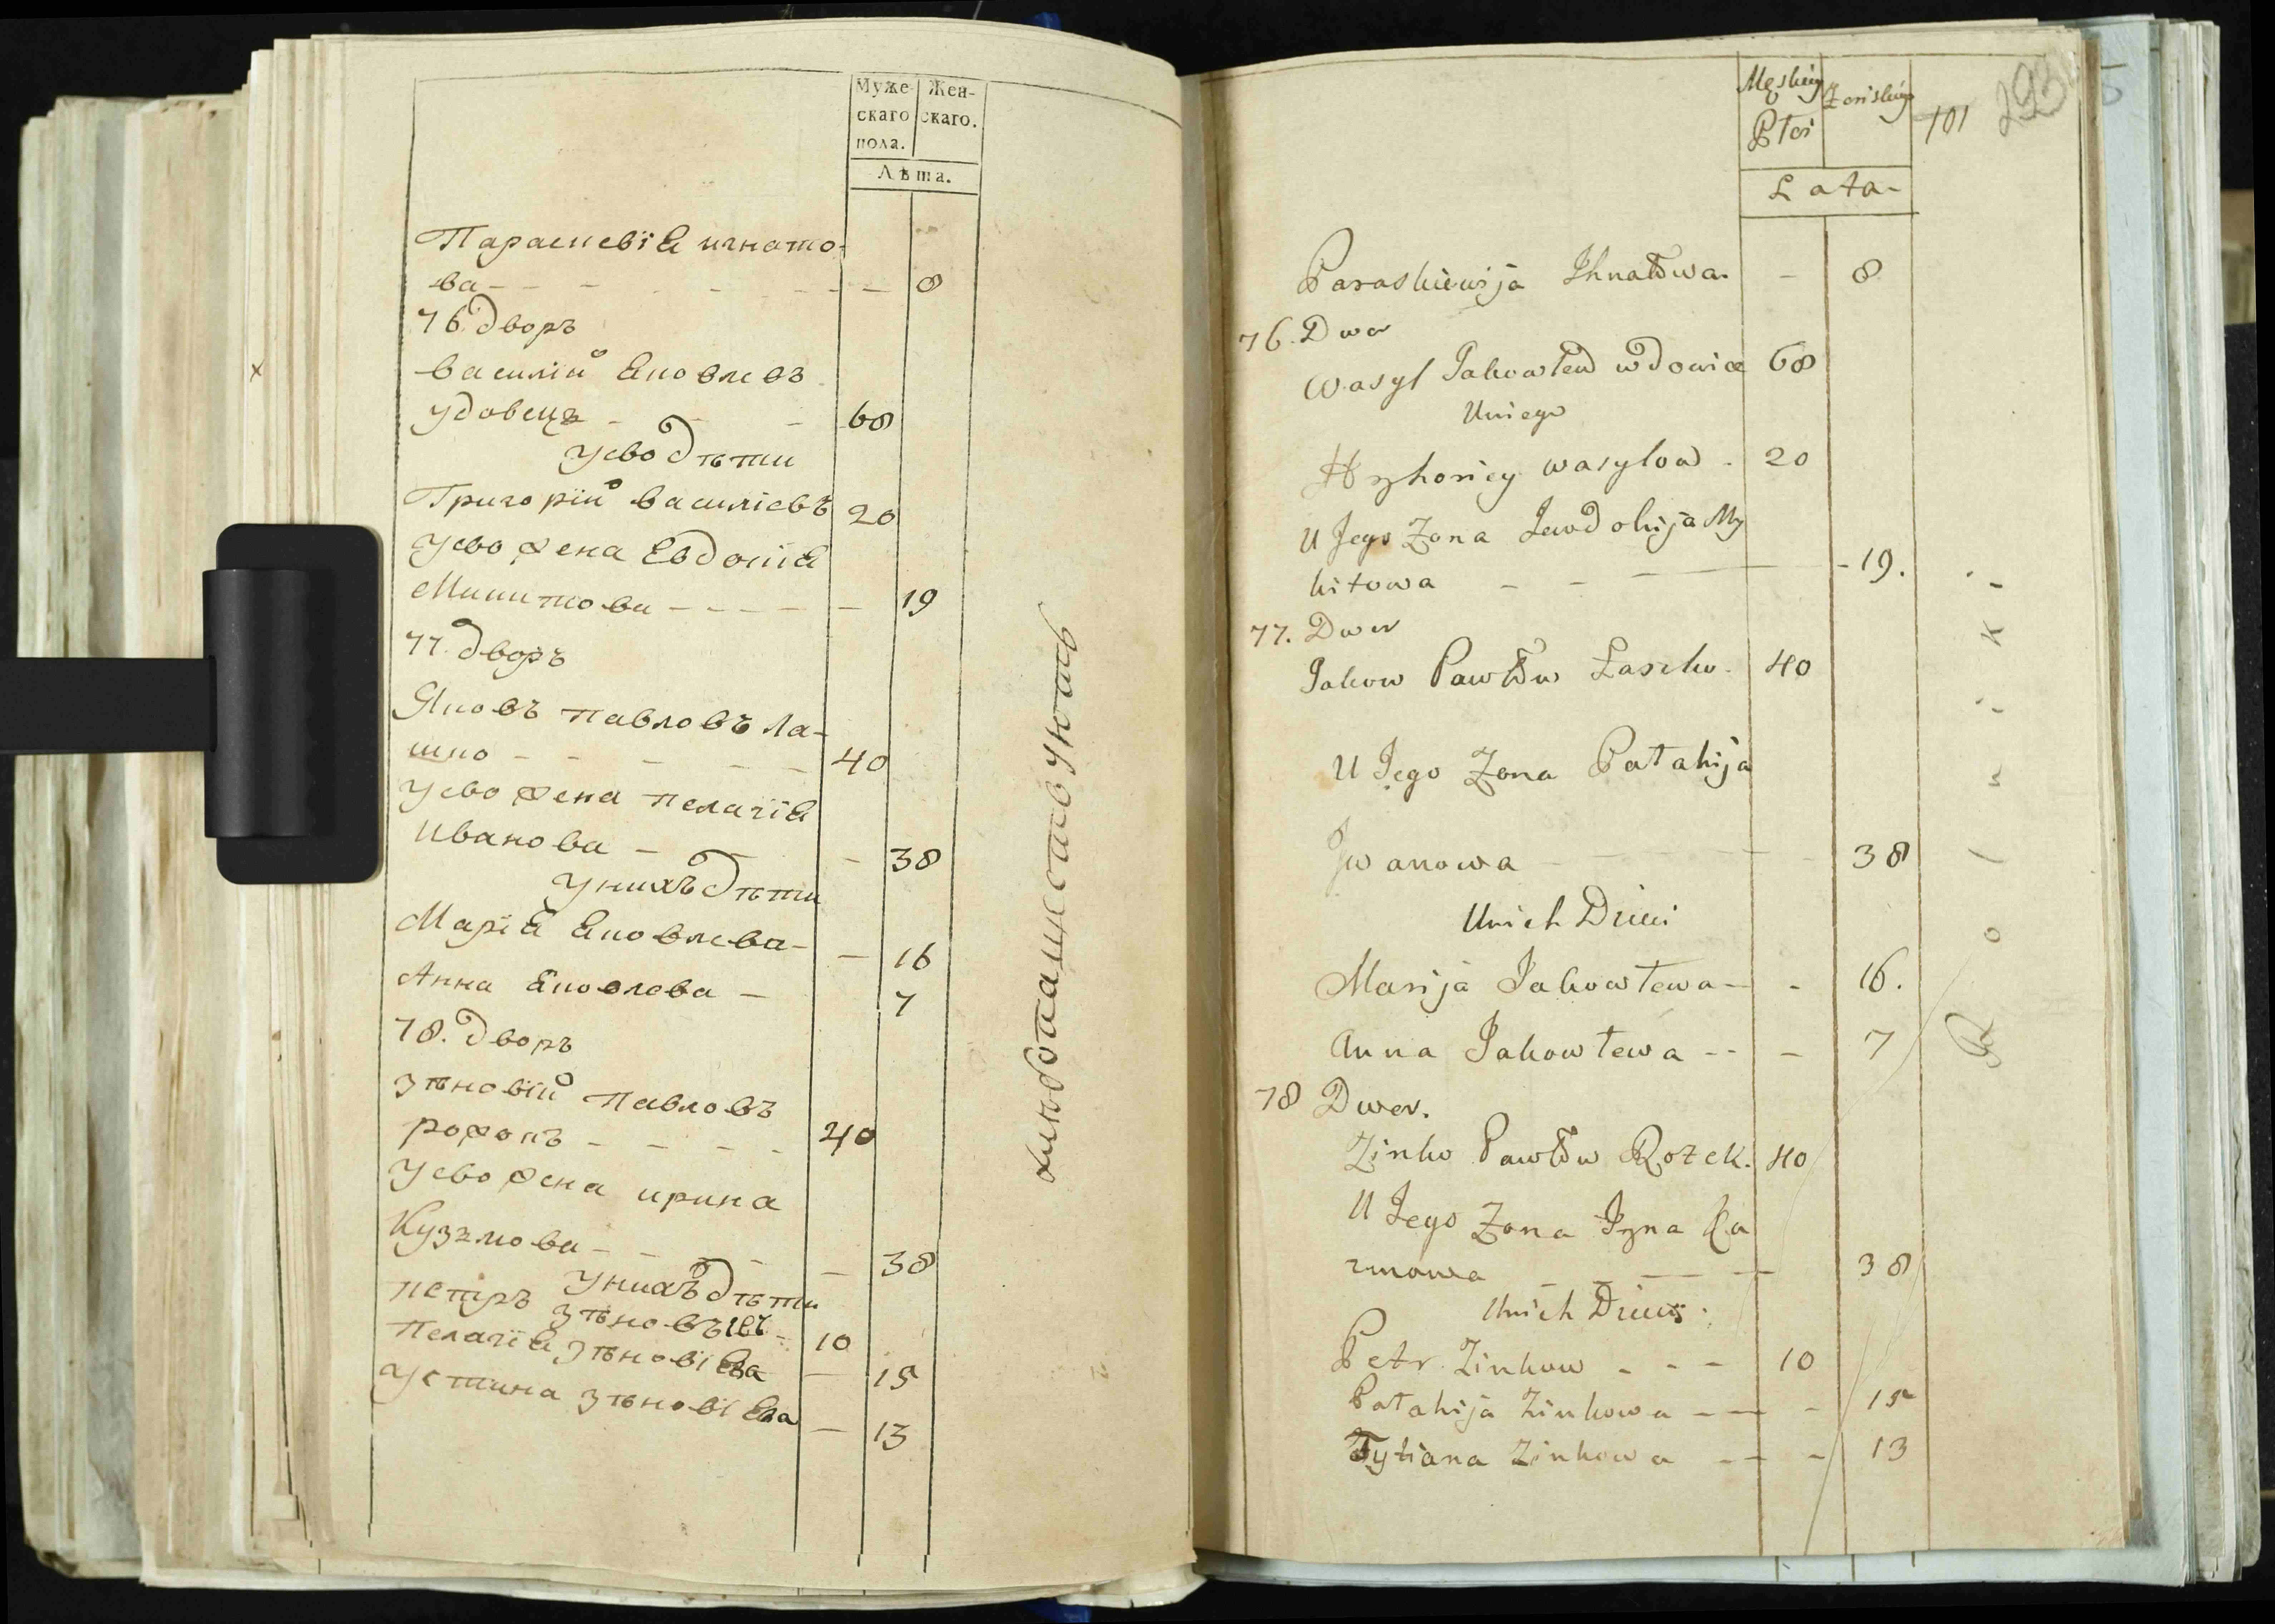 Муже-
скаго
пола.
Жен-
скаго.
Лѣта.
Параскевія игнато-
ва - - - - - - - 8
76 дворъ
василій яковлевъ
удовецъ - - - 68
уево дѣти
Григорій василіевъ 20
уево жена Евдокія
Микитова - - - - - 19
77. дворъ
Яковъ павловъ ла-
шко - - - - - 40
уево жена пелагія
Иванова - - 38
унихъ дѣти
Марія яковлева - - 16
Анна яковлева - 7
78. дворъ
зѣновій павловъ
рожокъ - - - - 40
уево жена ирина
Кузмова - - - - 38
унихъ дѣти
петръ зѣновъевъ - 10
Пелагія зѣновіева - 15
устина зѣновіева - 13
Męskiey
Płci
Żeńskiey
101
293
Lata -
Paraskiewija Ihnatowa - 8
76. Dwor
Wasyl Jakowlew wdowiec 68
Uniego
Hryhoriey wasylow - 20
U Jego Zona Jewdokija My
kitowa - - - - 19.
77. Dwor
Jakow Pawłow Laszko - 40
U Jego Zona Pałahija
Jwanowa - - 38
Unich Dzieci
Marija Jakowlewa - - 16.
Anna Jakowlewa - - - 7
78 Dwor.
Zinko Pawłow Rożek. 40
U Jego Zona Iryna Ku
zmowa - - - - 38
Unich Dzieci.
Petr Zinkow - - - 10
Pałahija Zinkowa - - - 15
Tytiana Zinkowa - - - 13
Rolniki -